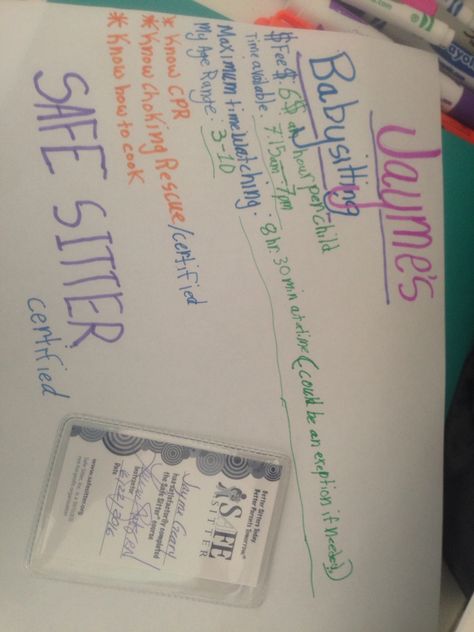 Jayme's
Babysitting
$Fee$: 6$ an hour per child
Time available: 7:15am-7pm
Maximum time watching: 8hr. 30min at a time (could be an exeption if needed)
My Age Range: 3-10
* Know CPR
* Know choking Rescue/certified
* Know how to cook
SAFE SITTER
certified
Better Sitters Today.
Better Parents Tomorrow.
SAFE
SITTER
Jayme Geary
has satisfactorily completed
the Safe Sitter course
Instructor
Date 6/22/2016
www.safesitter.org